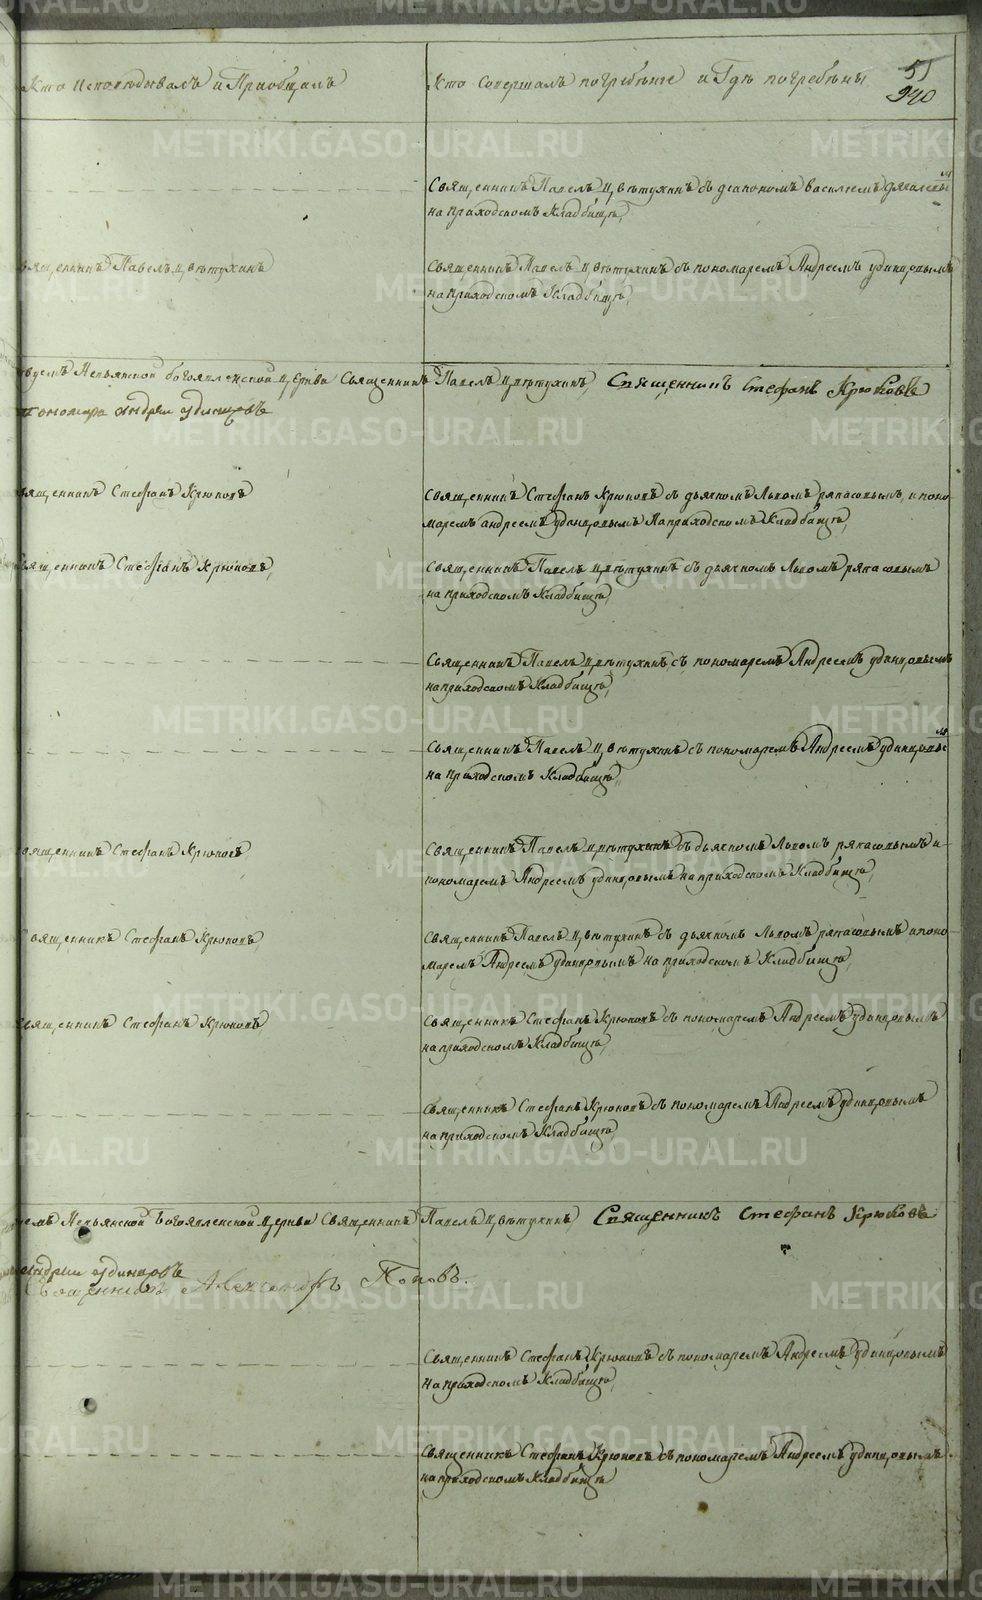 Кто Исповѣдывалъ и Приобщалъ
Кто Совершалъ погребѣніе и Гдѣ погребѣны
51
240
Священникъ Павелъ Цвѣтухинъ съ діакономъ Василіемъ
на приходскомъ Кладбищѣ,
вященникъ Павелъ Цвѣтухинъ
Священникъ Павелъ Цвѣтухинъ съ пономаремъ Андреемъ Удинцовымъ
на приходскомъ Кладбищѣ,
Невьянской богоявленской церкви Священникъ Павелъ Цвѣтухинъ, Священникъ Стефанъ Крюковъ
пономарь андрей удинцовъ
вященникъ Стефанъ Крюковъ
Священникъ Стефанъ Крюковъ съ дьячкомъ Львомъ ряпасовымъ, и поно-
маремъ андреемъ удинцовымъ На приходскомъ Кладбищѣ,
вященникъ Стефанъ Крюковъ,
Священникъ Павелъ Цвѣтухинъ съ дьячкомъ Львомъ ряпасовымъ
на приходскомъ Кладбищѣ,
Священникъ Павелъ Цвѣтухинъ, съ пономаремъ Андреемъ удинцовымъ
на приходскомъ Кладбищѣ,
Священникъ Павелъ Цвѣтухинъ съ пономаремъ Андреемъ удинцовымъ
на приходскомъ Кладбищѣ,
вященникъ Стефанъ Крюковъ
Священникъ Павелъ Цвѣтухинъ съ дьячкомъ Львомъ ряпасовымъ и
пономаремъ Андреемъ удинцовымъ на приходскомъ Кладбищѣ,
Священникъ Стефанъ Крюковъ
Священникъ Павелъ Цвѣтухинъ съ дьячкомъ Львомъ ряпасовымъ и поно-
маремъ Андреемъ удинцовымъ на приходскомъ Кладбищѣ,
Священникъ Стефанъ Крюковъ
Священникъ Стефанъ Крюковъ съ пономаремъ Андреемъ удинцовымъ
на приходскомъ Кладбищѣ,
Священникъ Стефанъ Крюковъ съ пономаремъ Андреемъ удинцовымъ
на приходскомъ Кладбищѣ,
Невьянской Богоявленской Церкви Священникъ Павелъ Цвѣтухинъ, Священникъ Стефанъ Крюковъ
андрей удинцовъ
Священникъ Александръ Поповъ.
Священникъ Стефанъ Крюковъ съ пономаремъ Андреемъ удинцовымъ
на приходскомъ Кладбищѣ,
Священникъ Стефанъ Крюковъ съ пономаремъ Андреемъ удинцовымъ
на приходскомъ Кладбищѣ
METRIKI.GASO-URAL.RU